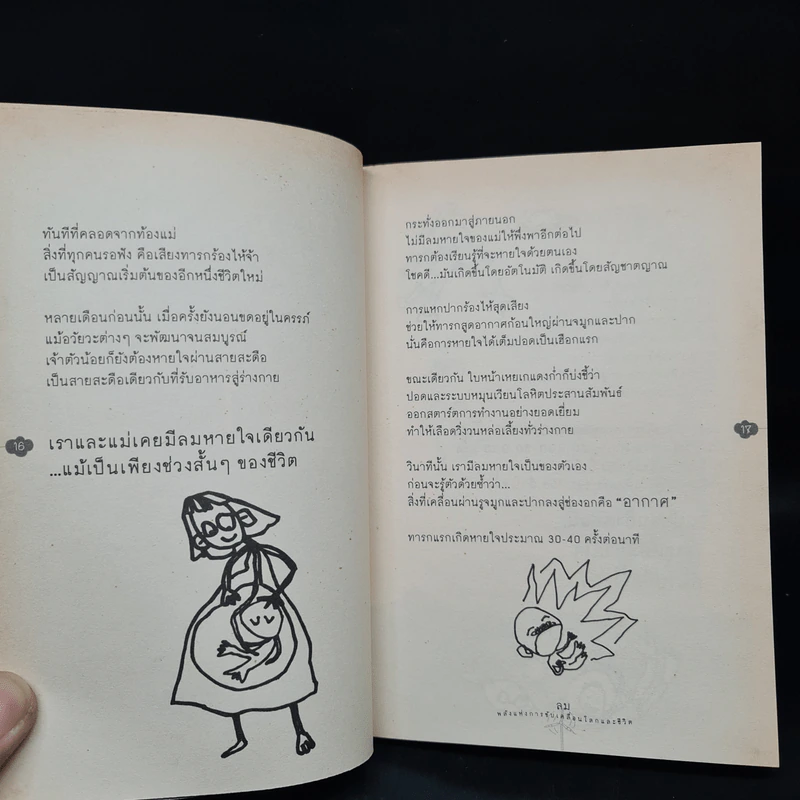 ทันทีที่คลอดจากท้องแม่
สิ่งที่ทุกคนรอฟัง คือเสียงทารกร้องไห้จ้า
เป็นสัญญาณเริ่มต้นของอีกหนึ่งชีวิตใหม่
หลายเดือนก่อนนั้น เมื่อครั้งยังนอนขดอยู่ในครรภ์
แม้อวัยวะต่างๆ จะพัฒนาจนสมบูรณ์
เจ้าตัวน้อยก็ยังต้องหายใจผ่านสายสะดือ
เป็นสายสะดือเดียวกับที่รับอาหารสู่ร่างกาย
16
เราและแม่เคยมีลมหายใจเดียวกัน
...แม้เป็นเพียงช่วงสั้นๆ ของชีวิต
กระทั่งออกมาสู่ภายนอก
ไม่มีลมหายใจของแม่ให้พึ่งพาอีกต่อไป
ทารกต้องเรียนรู้ที่จะหายใจด้วยตนเอง
โชคดี...มันเกิดขึ้นโดยอัตโนมัติ เกิดขึ้นโดยสัญชาตญาณ
การแหกปากร้องให้สุดเสียง
ช่วยให้ทารกสูดอากาศก้อนใหญ่ผ่านจมูกและปาก
นั่นคือการหายใจได้เต็มปอดเป็นเฮือกแรก
ขณะเดียวกัน ใบหน้าเหยเกแดงก่ำก็บ่งชี้ว่า
ปอดและระบบหมุนเวียนโลหิตประสานสัมพันธ์
ออกสตาร์ตการทำงานอย่างยอดเยี่ยม
ทำให้เลือดวิ่งวนหล่อเลี้ยงทั่วร่างกาย
17
วินาทีนั้น เรามีลมหายใจเป็นของตัวเอง
ก่อนจะรู้ตัวด้วยซ้ำว่า...
สิ่งที่เคลื่อนผ่านรูจมูกและปากลงสู่ช่องอกคือ "อากาศ"
ทารกแรกเกิดหายใจประมาณ 30-40 ครั้งต่อนาที
ลม
พลังแห่งการขับเคลื่อนโลกและชีวิต